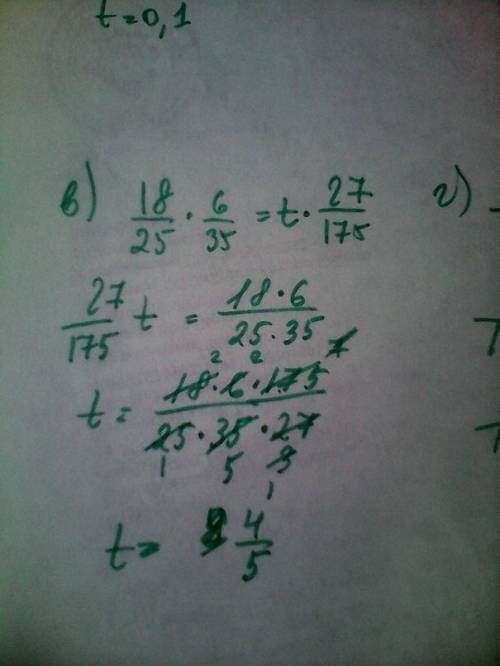 t=0,1
в) 18/25 · 6/35 = t · 27/175 г)
27/175 t = 18·6/25·35
t = 18·6·175/25·35·27
t= 4/5